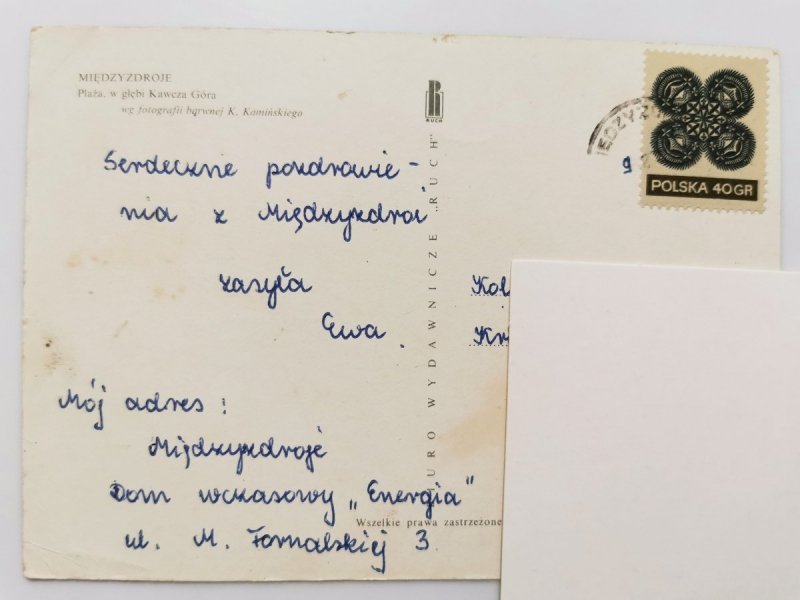 MIĘDZYZDROJE
Plaża, w głębi Kawcza Góra
wg fotografii barwnej K. Kamińskiego
RUCH
POLSKA 40GR
9
Serdeczne pozdrowie-
nia z Międzyzdroi
zasyła
Ewa.
BIURO WYDAWNICZE „RUCH”
Mój adres:
Międzyzdroje
Dom wczasowy „Energia"
ul. M. Fornalskiej 3.
Wszelkie prawa zastrzeżone